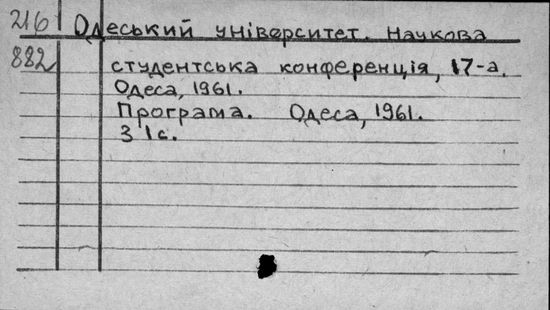 216 Одеський університет. Наукова
882 студентська конференція, 17-а.
Одеса, 1961.
Програма. Одеса, 1961.
31с.